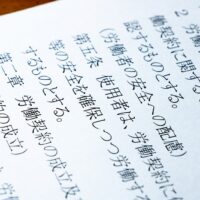 2 労
働契約に関する
認するものとする。
(労働者の安全への配慮)
第五条 使用者は、労働契約に
等の安全を確保しつつ労働する
するものとする。
第二章 労働契約の成立及
の成立)